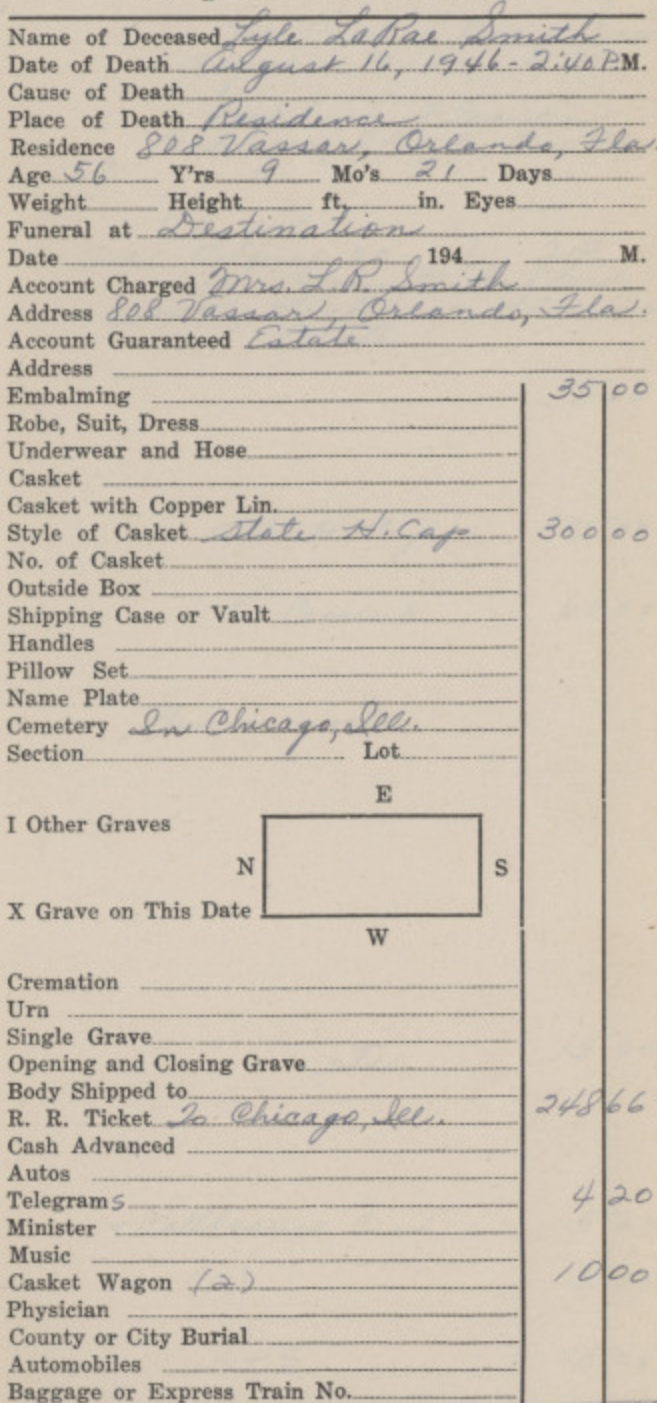 Name of Deceased Lyle LaRae Smith
Date of Death August 16, 1946 - 2:40 P.M.
Cause of Death
Place of Death Residence
Residence 808 Vassar, Orlando, Fla.
Age 56 Y'rs 9 Mo's 21 Days
Weight Height ft. in. Eyes
Funeral at Destination
Date 194 M.
Account Charged Mrs. L. R. Smith
Address 808 Vassar, Orlando, Fla.
Account Guaranteed Estate
Address
Embalming 35 00
Robe, Suit, Dress
Underwear and Hose
Casket
Casket with Copper Lin.
Style of Casket State H. Cap 300 00
No. of Casket
Outside Box
Shipping Case or Vault
Handles
Pillow Set
Name Plate
Cemetery In Chicago, Ill.
Section Lot
E
I Other Graves
N S
X Grave on This Date
W
Cremation
Urn
Single Grave
Opening and Closing Grave
Body Shipped to
R. R. Ticket To Chicago, Ill. 248 66
Cash Advanced
Autos
Telegrams 4 20
Minister
Music
Casket Wagon (2) 10 00
Physician
County or City Burial
Automobiles
Baggage or Express Train No.